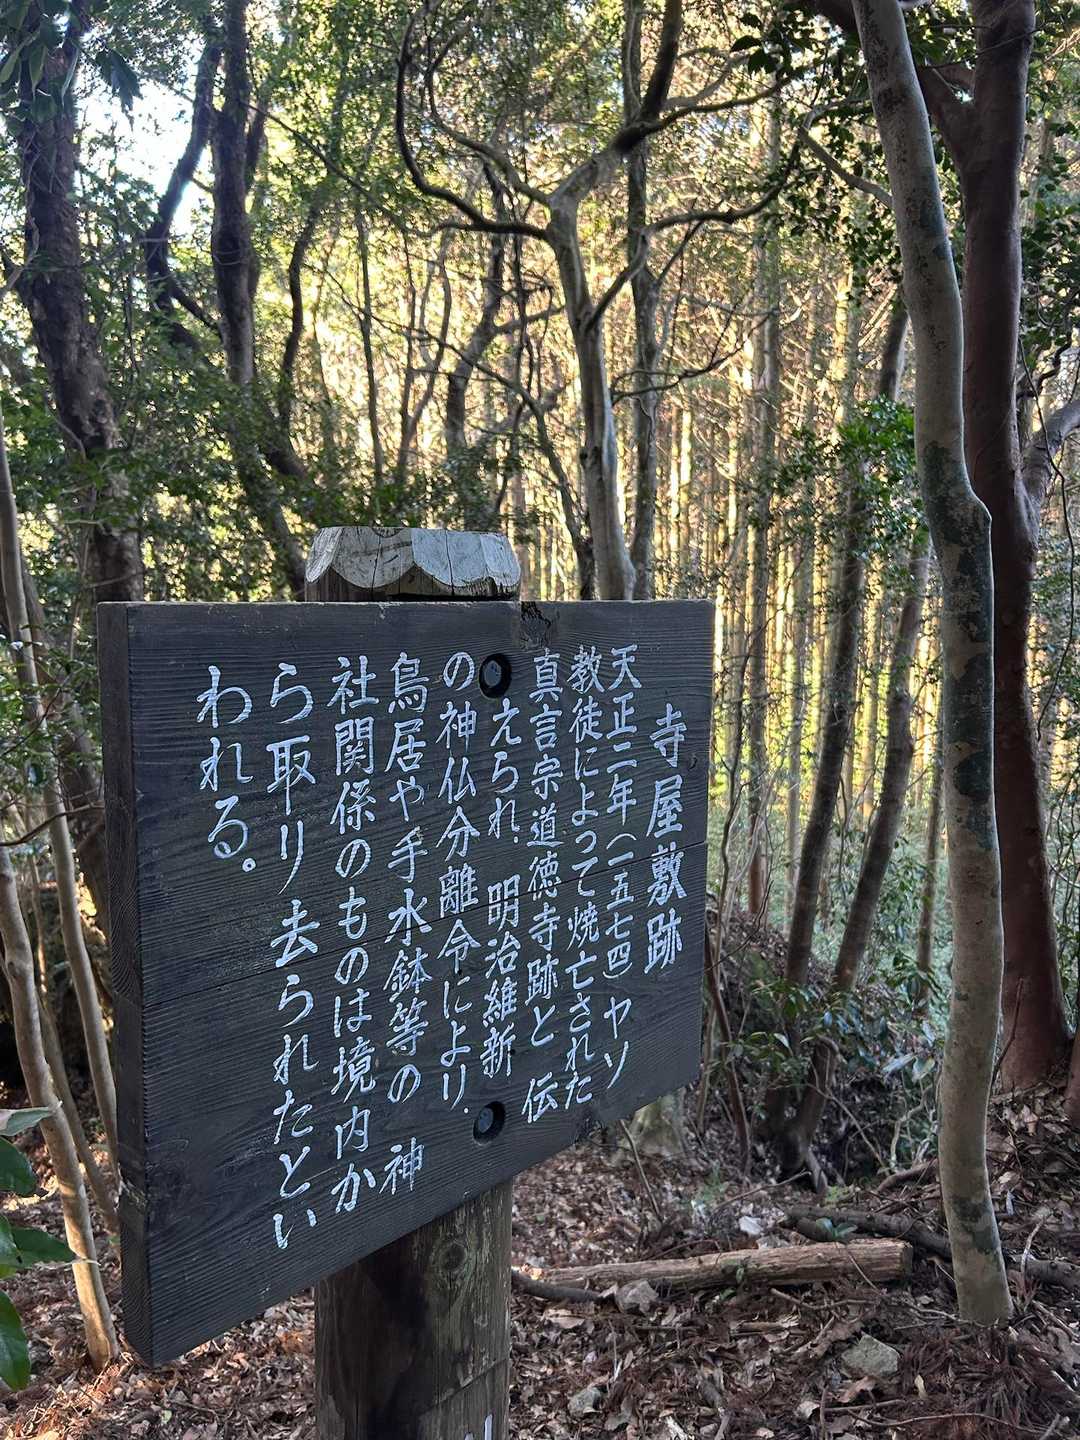 寺屋敷跡
天正二年（一五七四）ヤソ
教徒によって焼亡された
真言宗道徳寺跡と伝
えられ、明治維新
の神仏分離令により、
鳥居や手水鉢等の神
社関係のものは境内か
ら取り去られたとい
われる。